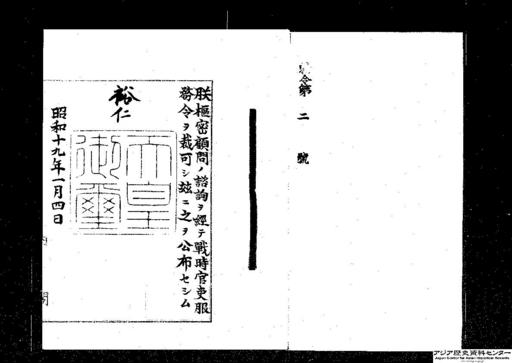 令第二號
朕樞密顧問ノ諮詢ヲ經テ戰時官吏服
務令ヲ裁可シ茲ニ之ヲ公布セシム
裕仁
天皇
御璽
昭和十九年一月四日
内閣
アジア歴史資料センター
Japan Center for Asian Historical Records